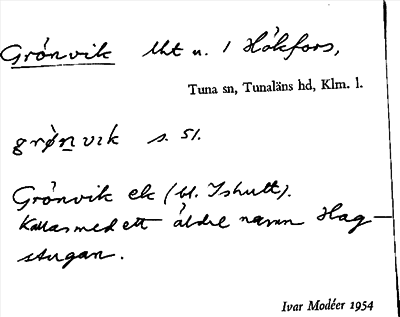 Grönvik lht u. / Hökfors,
Tuna sn, Tunaläns hd, Klm. l.
grø̀n vik s. 51.
Grönvik ek (bl. Ishult).
Kallas med ett äldre namn Hag-
stugan.
Ivar Modéer 1954